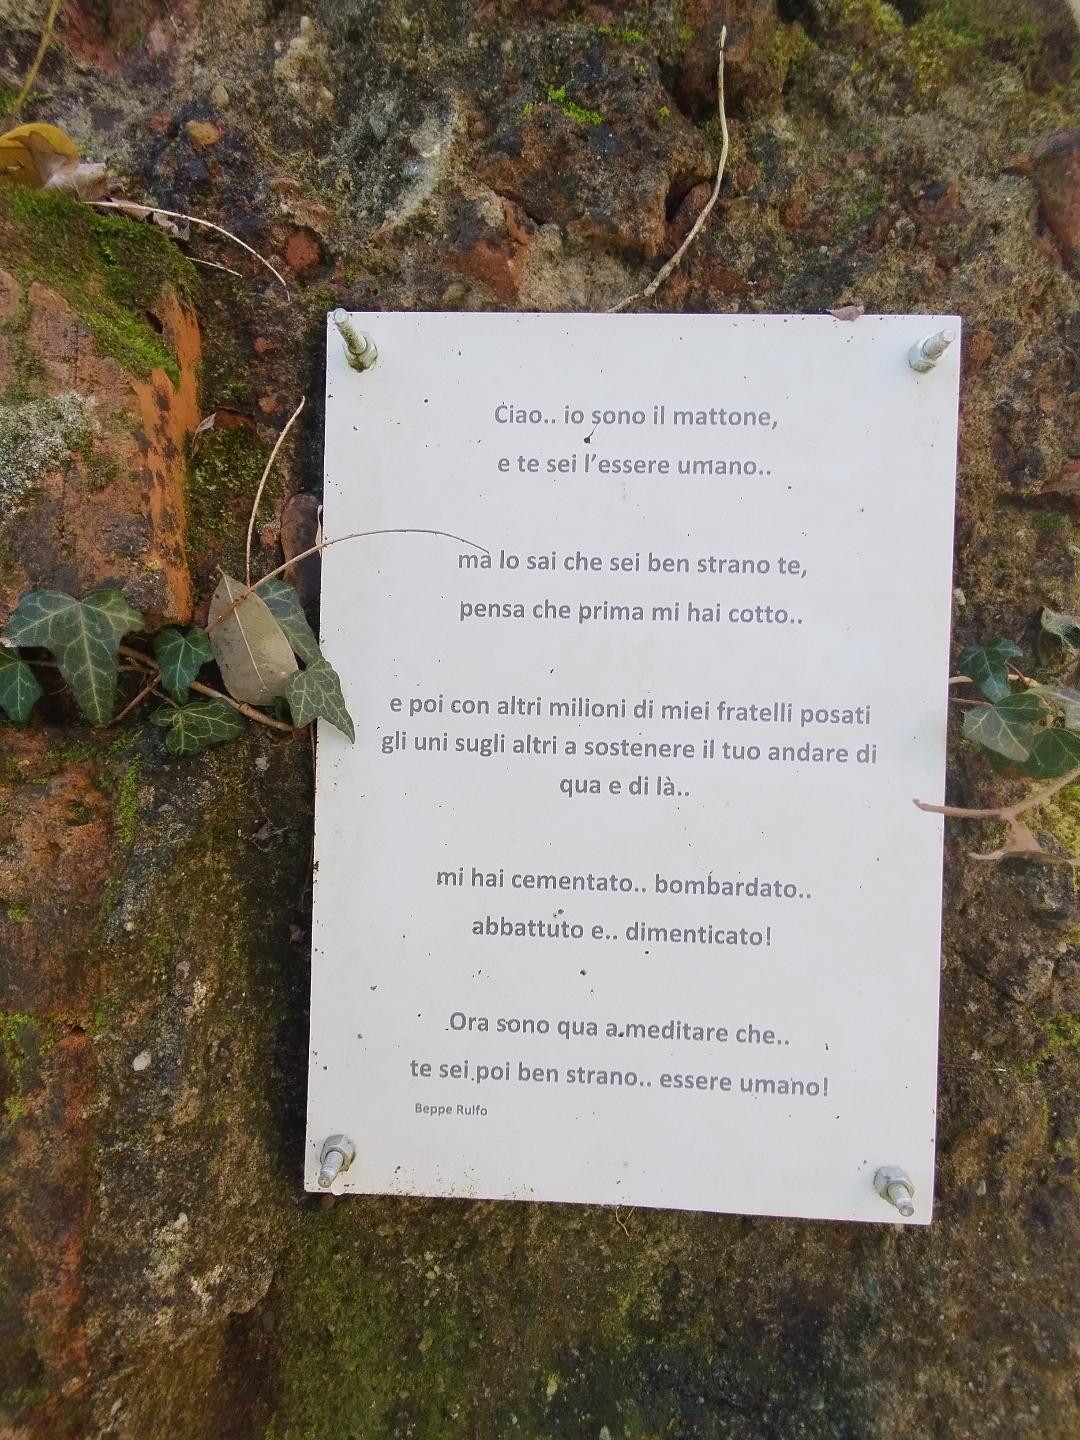 Ciao.. io sono il mattone,
e te sei l’essere umano..
ma lo sai che sei ben strano te,
pensa che prima mi hai cotto..
e poi con altri milioni di miei fratelli posati
gli uni sugli altri a sostenere il tuo andare di
qua e di là..
mi hai cementato.. bombardato..
abbattuto e.. dimenticato!
Ora sono qua a meditare che..
te sei poi ben strano.. essere umano!
Beppe Rulfo